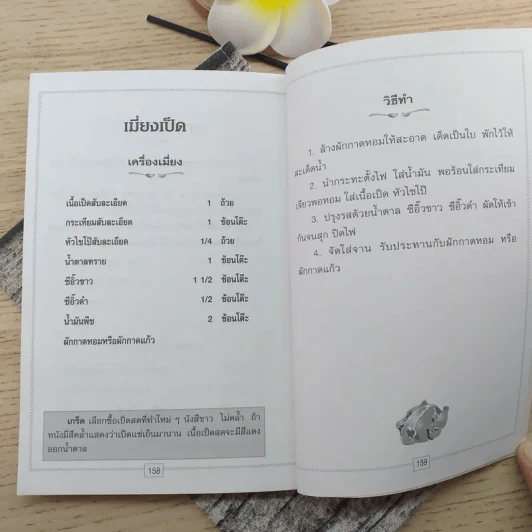 เมี่ยงเป็ด
เครื่องเมี่ยง
เนื้อเป็ดสับละเอียด 1 ถ้วย
กระเทียมสับละเอียด 1 ช้อนโต๊ะ
หัวไชโป๊สับละเอียด 1/4 ถ้วย
น้ำตาลทราย 1 ช้อนโต๊ะ
ซีอิ๊วขาว 1 1/2 ช้อนโต๊ะ
ซีอิ๊วดำ 1/2 ช้อนโต๊ะ
น้ำมันพืช 2 ช้อนโต๊ะ
ผักกาดหอมหรือผักกาดแก้ว
เกร็ด เลือกซื้อเป็ดสดที่ทำใหม่ ๆ นังสีขาว ไม่คล้ำ ถ้า
หนังมีสีคล้ำแสดงว่าเป็ดแช่เย็นมานาน เนื้อเป็ดสดจะมีสีแดง
ออกน้ำตาล
158
วิธีทำ
1. ล้างผักกาดหอมให้สะอาด เด็ดเป็นใบ พักไว้ให้
สะเด็ดน้ำ
2. นำกระทะตั้งไฟ ใส่น้ำมัน พอร้อนใส่กระเทียม
เจียวพอหอม ใส่เนื้อเป็ด หัวไชโป๊
3. ปรุงรสด้วยน้ำตาล ซีอิ๊วขาว ซีอิ๊วดำ ผัดให้เข้า
กันจนสุก ปิดไฟ
4. จัดใส่จาน รับประทานกับผักกาดหอม หรือ
ผักกาดแก้ว
159